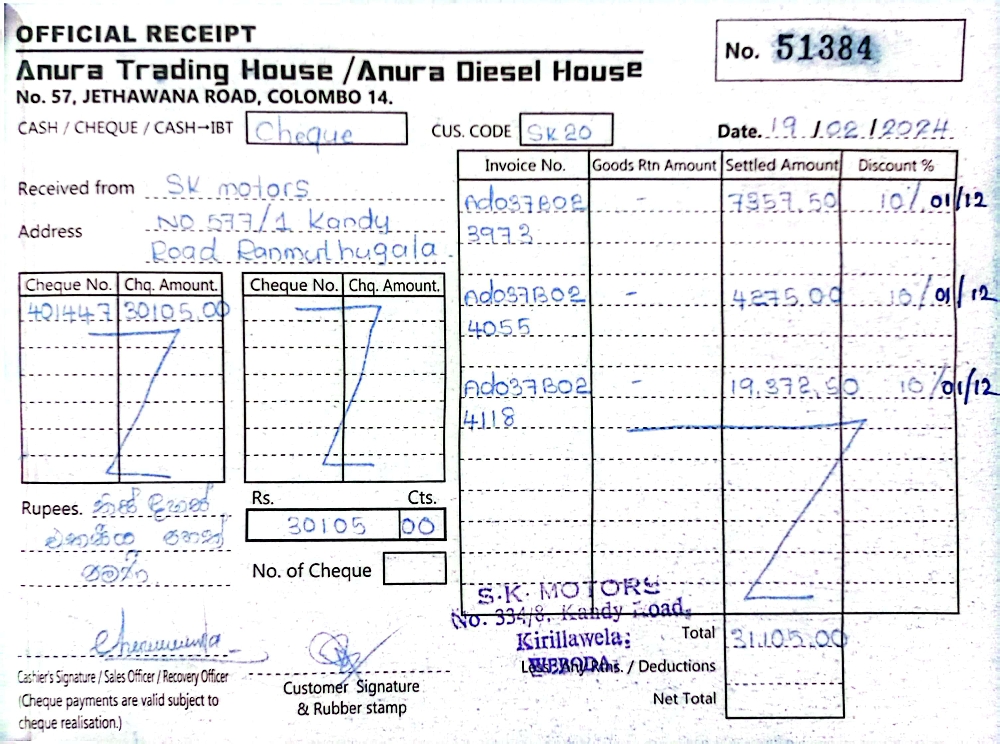 OFFICIAL RECEIPT
No. 51384
Anura Trading House /Anura Diesel House
No. 57, JETHAWANA ROAD, COLOMBO 14.
CASH / CHEQUE / CASH→IBT Cheque CUS. CODE SK20 Date. 19/02/2024
Invoice No. Goods Rtn Amount Settled Amount Discount %
Received from SK motors
Address NO 577/1 Kandy
Road Ranmuthugala
Ad037B02 - 7357.50 10% 01/12
3973
Ad037B02 - 4275.00 10% 01/12
4055
Ad037B02 - 19,372.50 10% 01/12
4118
Cheque No. Chq. Amount. Cheque No. Chq. Amount.
401447 30105.00
Rupees. තිස් දහස්
එකසිය පහක්
පමණි
Rs. Cts.
30105 00
No. of Cheque
S.K. MOTORS
No. 334/8, Kandy Road,
Kirillawela;
WEBODA.
Total 31105.00
Less: Any Rtns. / Deductions
Net Total
Cashier's Signature / Sales Officer / Recovery Officer
(Cheque payments are valid subject to
cheque realisation.)
Customer Signature
& Rubber stamp